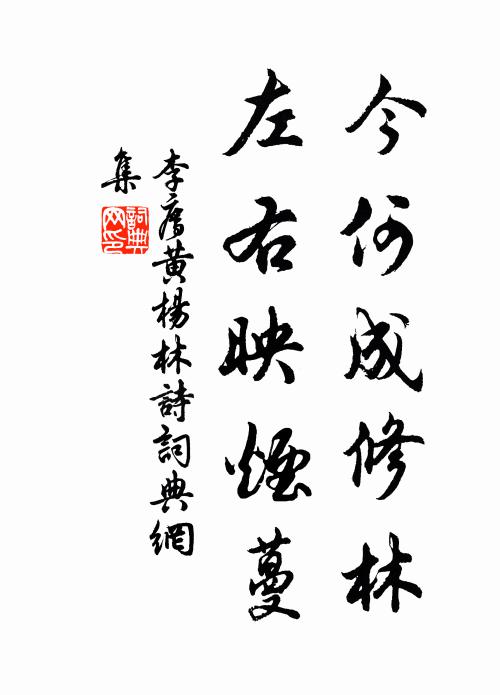 今何成修林
左右映煙蔓
李廌黃楊林詩詞典網
集
詞典網印